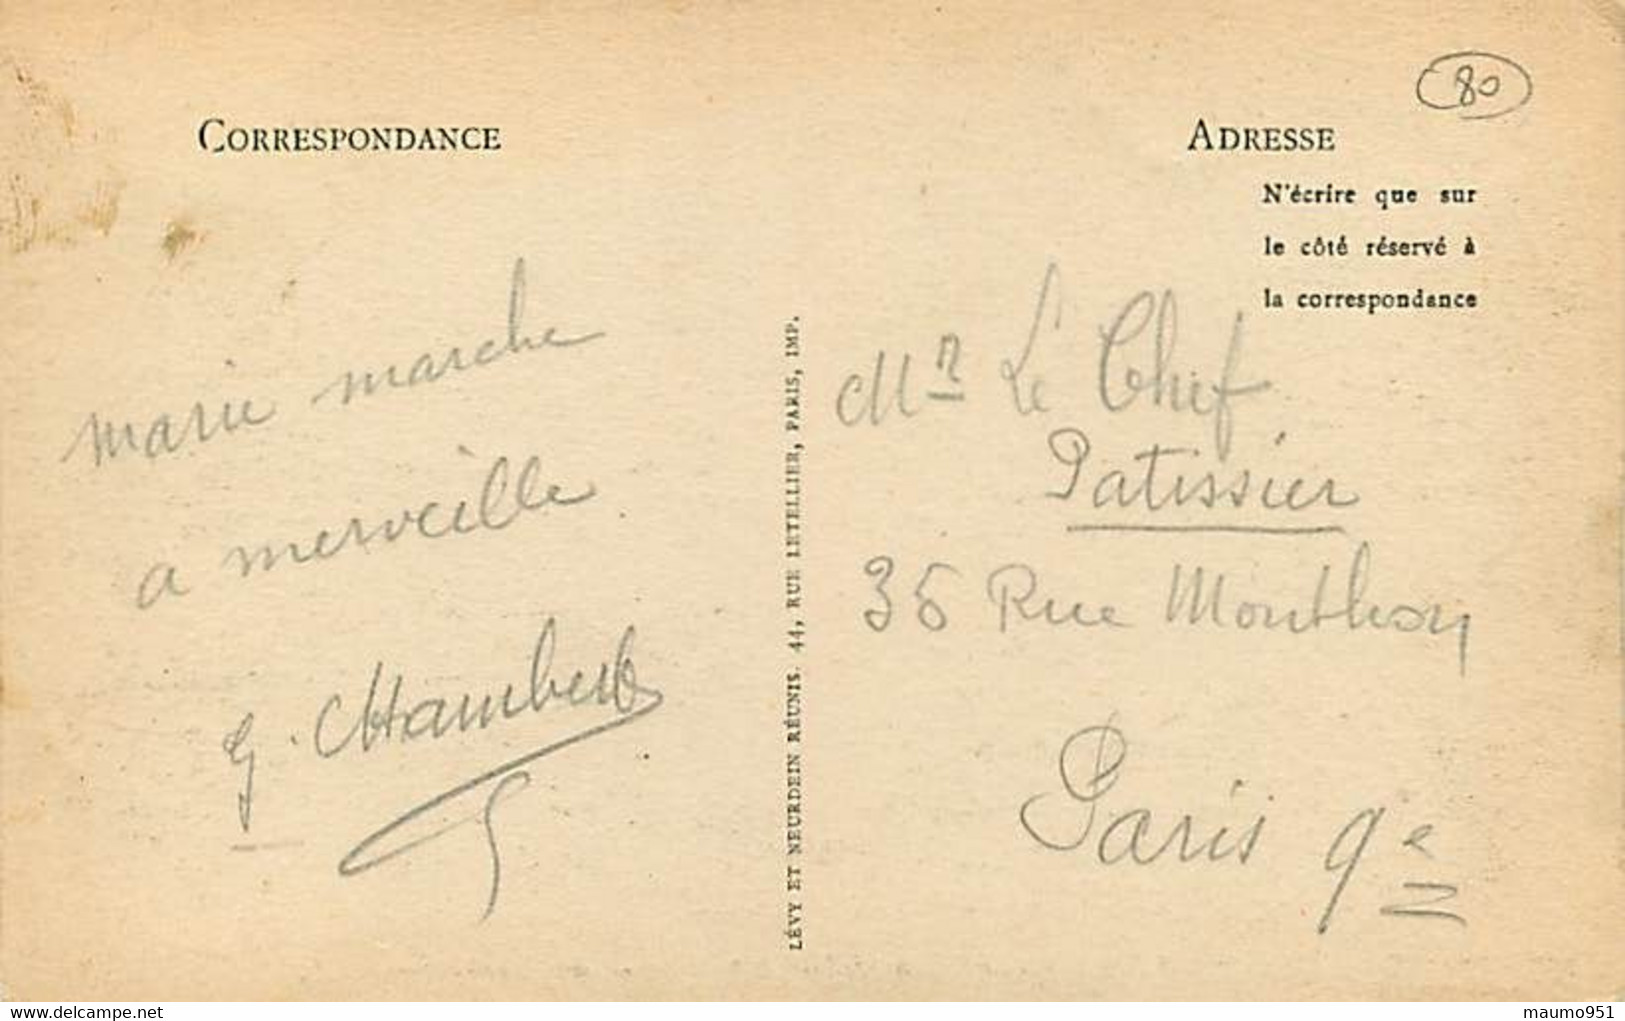 80
CORRESPONDANCE
ADRESSE
N'écrire que sur
le côté réservé à
la correspondance
marie marche
a merveille
G. CHambert
LÉVY ET NEURDEIN RÉUNIS. 44, RUE LETELLIER, PARIS, IMP.
Mr Le Chef
Patissier
35 Rue Monthon
Paris 9e
delcampe.net
maumo951